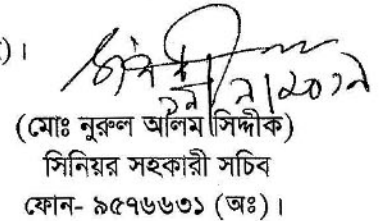 ) ।
(মোঃ নুরুল আলম সিদ্দীক)
সিনিয়র সহকারী সচিব
ফোন- ৯৫৭৬৬৩১ (অঃ) ।